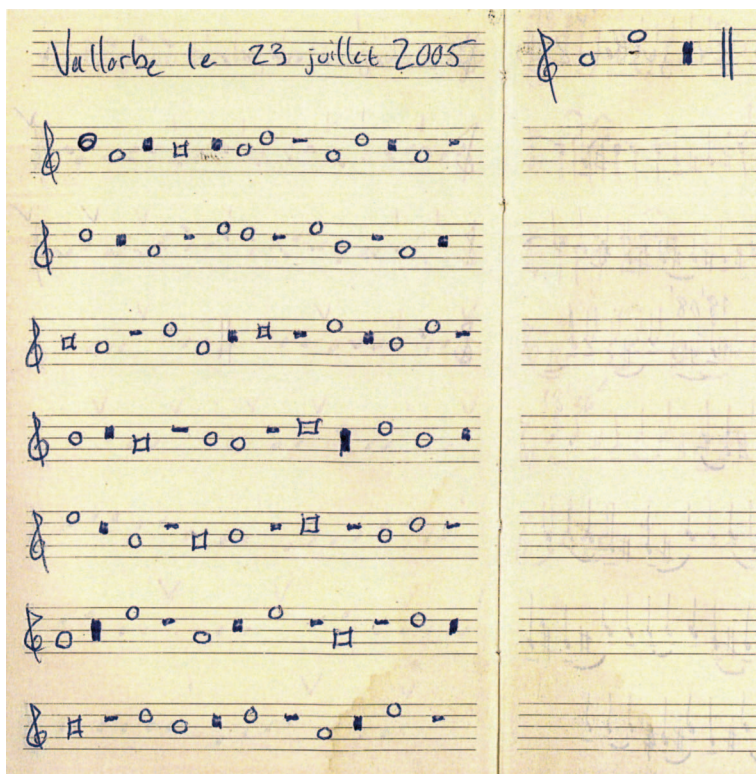 Vallorbe le 23 juillet 2005